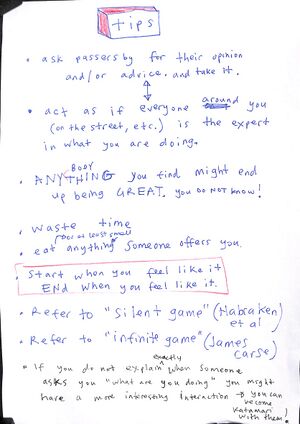 tips
• ask passersby for their opinion
and/or advice. and take it.
• act as if everyone around you
(on the street, etc.) is the expert
in what you are doing.
BODY
• ANYTHING you find might end
up being GREAT. you DO NOT KNOW!
• waste time
(or at least smell)
• eat anything someone offers you.
• Start when you feel like it
END when you feel like it.
• Refer to "Silent game" (Habraken
et al)
• Refer to "infinite game" (James
Carse)
exactly
• If you do not explain when someone
asks you "what are you doing" you might
have a more interesting interaction → you can
become
katamari
with them!